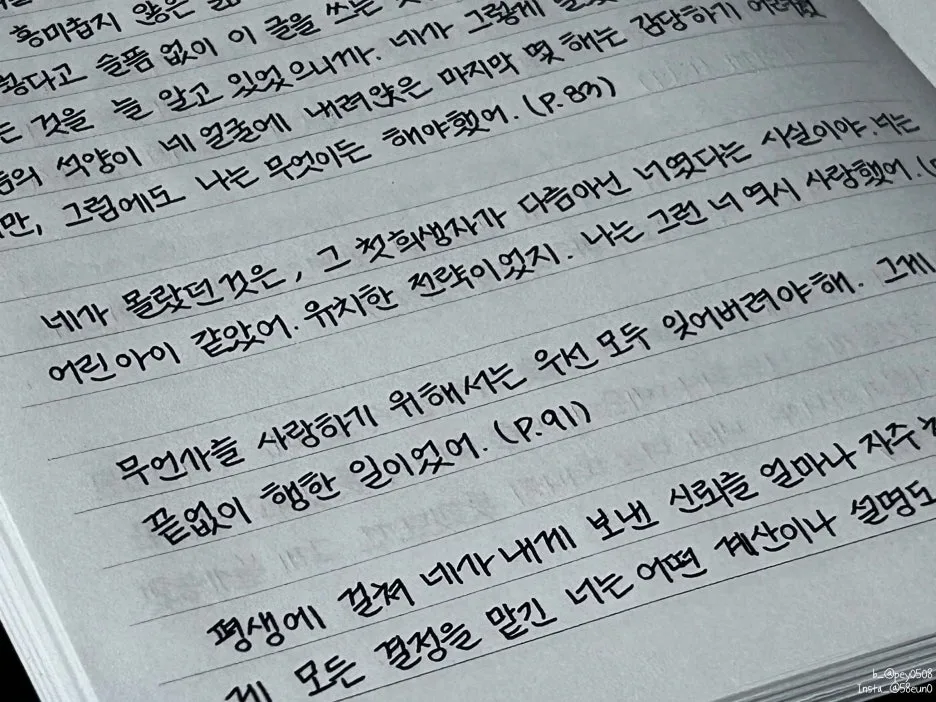 흥미롭지 않은
렇다고 슬픔 없이 이 글을 쓰는
는 것을 늘 알고 있었으니까. 네가 그렇게
음의 석양이 네 얼굴에 내려앉은 마지막 몇 해는 감당하기 어려웠
만, 그럼에도 나는 무엇이든 해야했어. (P.83)
네가 몰랐던것은, 그 첫희생자가 다름아닌 너였다는 사실이야. 너는
어린아이 같았어. 유치한 전략이었지. 나는 그런 너 역시 사랑했어. (
무언가를 사랑하기 위해서는 우선 모두 잊어버려야해. 그게
끝없이 행한 일이었어. (P.91)
평생에 걸쳐 네가 내게 보낸 신뢰를 얼마나 자주
게 모든 결정을 맡긴 너는 어떤 계산이나 설명도
b_@pey0508
Insta_@58eun0